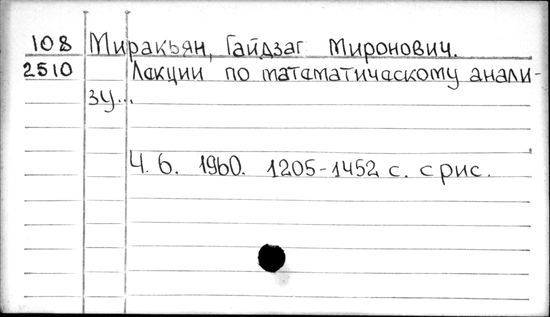 108 Миракьян, Гайдзаг Миронович.
2510 Лекции по математическому анали-
зу...
Ч. 6. 1960. 1205-1452 с. с рис.